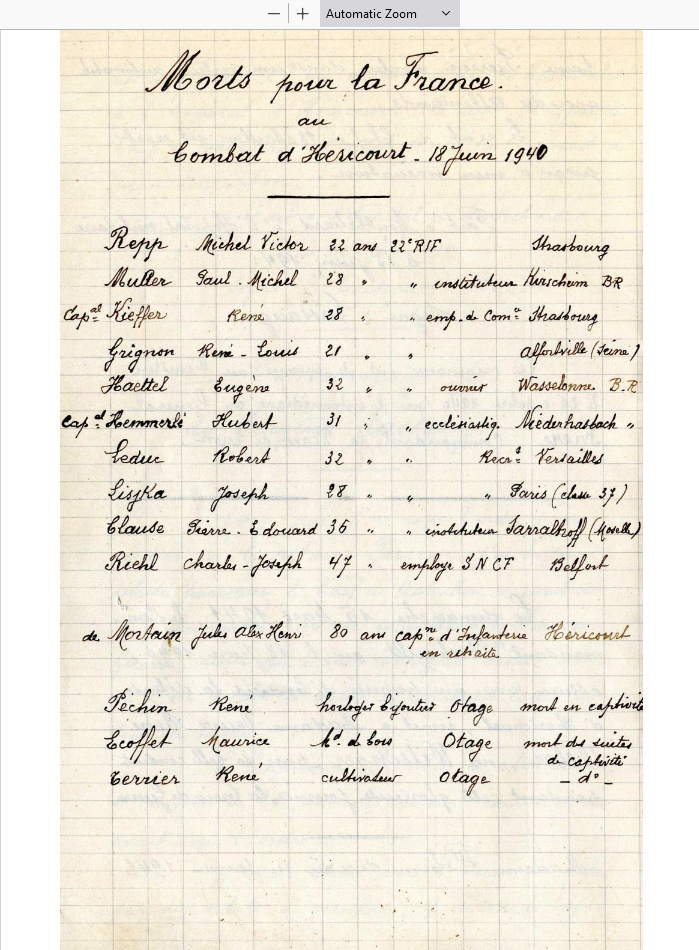 Automatic Zoom
Morts pour la France.
au
Combat d'Héricourt - 18 Juin 1940
Repp Michel Victor 22 ans 22e RIF Strasbourg
Muller Paul - Michel 28 " " instituteur Kirscheim BR
Capal Kieffer René 28 " " emp. de Comce Strasbourg
Grignon René - Louis 21 " " Alfortville (Seine)
Haettel Eugène 32 " " ouvrier Wasselonne B.R
Capal Hemmerlé Hubert 31 " " ecclésiastiq. Niederhasbach "
Leduc Robert 32 " " Recrt Versailles
Lisjka Joseph 28 " " " Paris (classe 37)
Clause Pierre - Edouard 36 " " instituteur Sarralhoff (Moselle)
Riehl Charles - Joseph 47 " employé SNCF Belfort
de Mortain Jules Alex Henri 80 ans capne d'Infanterie Héricourt
en retraite
Péchin René horloger bijoutier Otage mort en captivité
Ecoffet Maurice Md. de bois Otage mort des suites
de captivité
Terrier René cultivateur Otage - do -